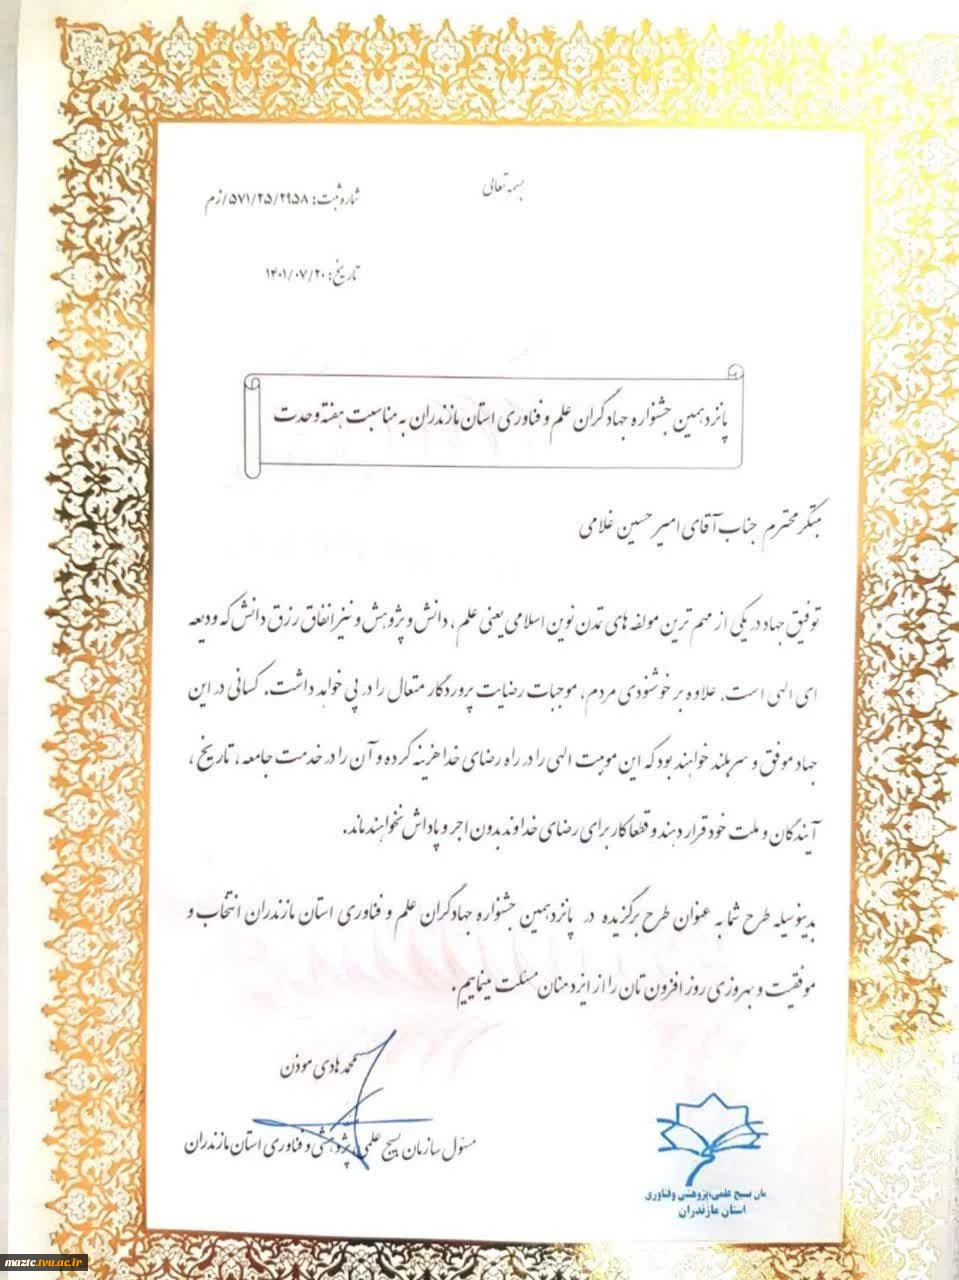 بسمه تعالی
شماره ثبت: ۵۷۱/۲۵/۲۹۵۸/زم
تاریخ: ۱۴۰۱/۰۷/۲۰
پانزدهمین جشنواره جهادگران علم و فناوری استان مازندران به مناسبت هفته وحدت
مبتکر محترم جناب آقای امیر حسین غلامی
توفیق جهاد در یکی از مهم ترین مولفه های تمدن نوین اسلامی یعنی علم ، دانش و پژوهش و نیز انفاق رزق دانش که ودیعه
ای الهی است، علاوه بر خوشنودی مردم، موجبات رضایت پروردگار متعال را در پی خواهد داشت. کسانی در این
جهاد موفق و سربلند خواهند بود که این موهبت الهی را در راه رضای خدا هزینه کرده و آن را در خدمت جامعه ، تاریخ ،
آیندگان و ملت خود قرار دهند و قطعا کار برای رضای خداوند بدون اجر و پاداش نخواهند ماند.
بدینوسیله طرح شما به عنوان طرح برگزیده در پانزدهمین جشنواره جهادگران علم و فناوری استان مازندران انتخاب و
موفقیت و بهروزی روز افزون تان را از ایزد منان مسئلت مینماییم.
محمد هادی موذن
مسئول سازمان بسیج علمی، پژوهشی و فناوری استان مازندران
مان بسیج علمی،پژوهشی وفناوری
استان مازندران
maztc.tvu.ac.ir